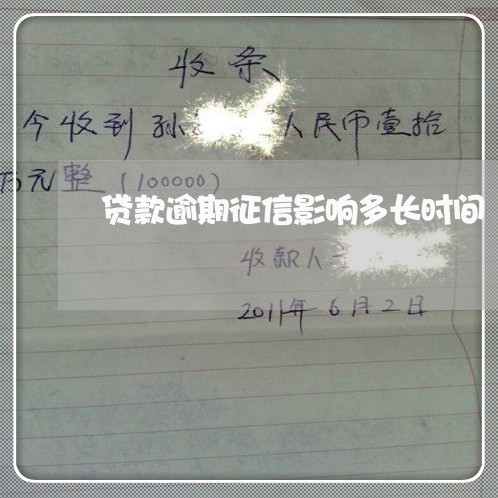 收条
今收到孙 人民币壹拾
万元整（100000）
贷款逾期征信影响多长时间
收款人
2011年6月2日